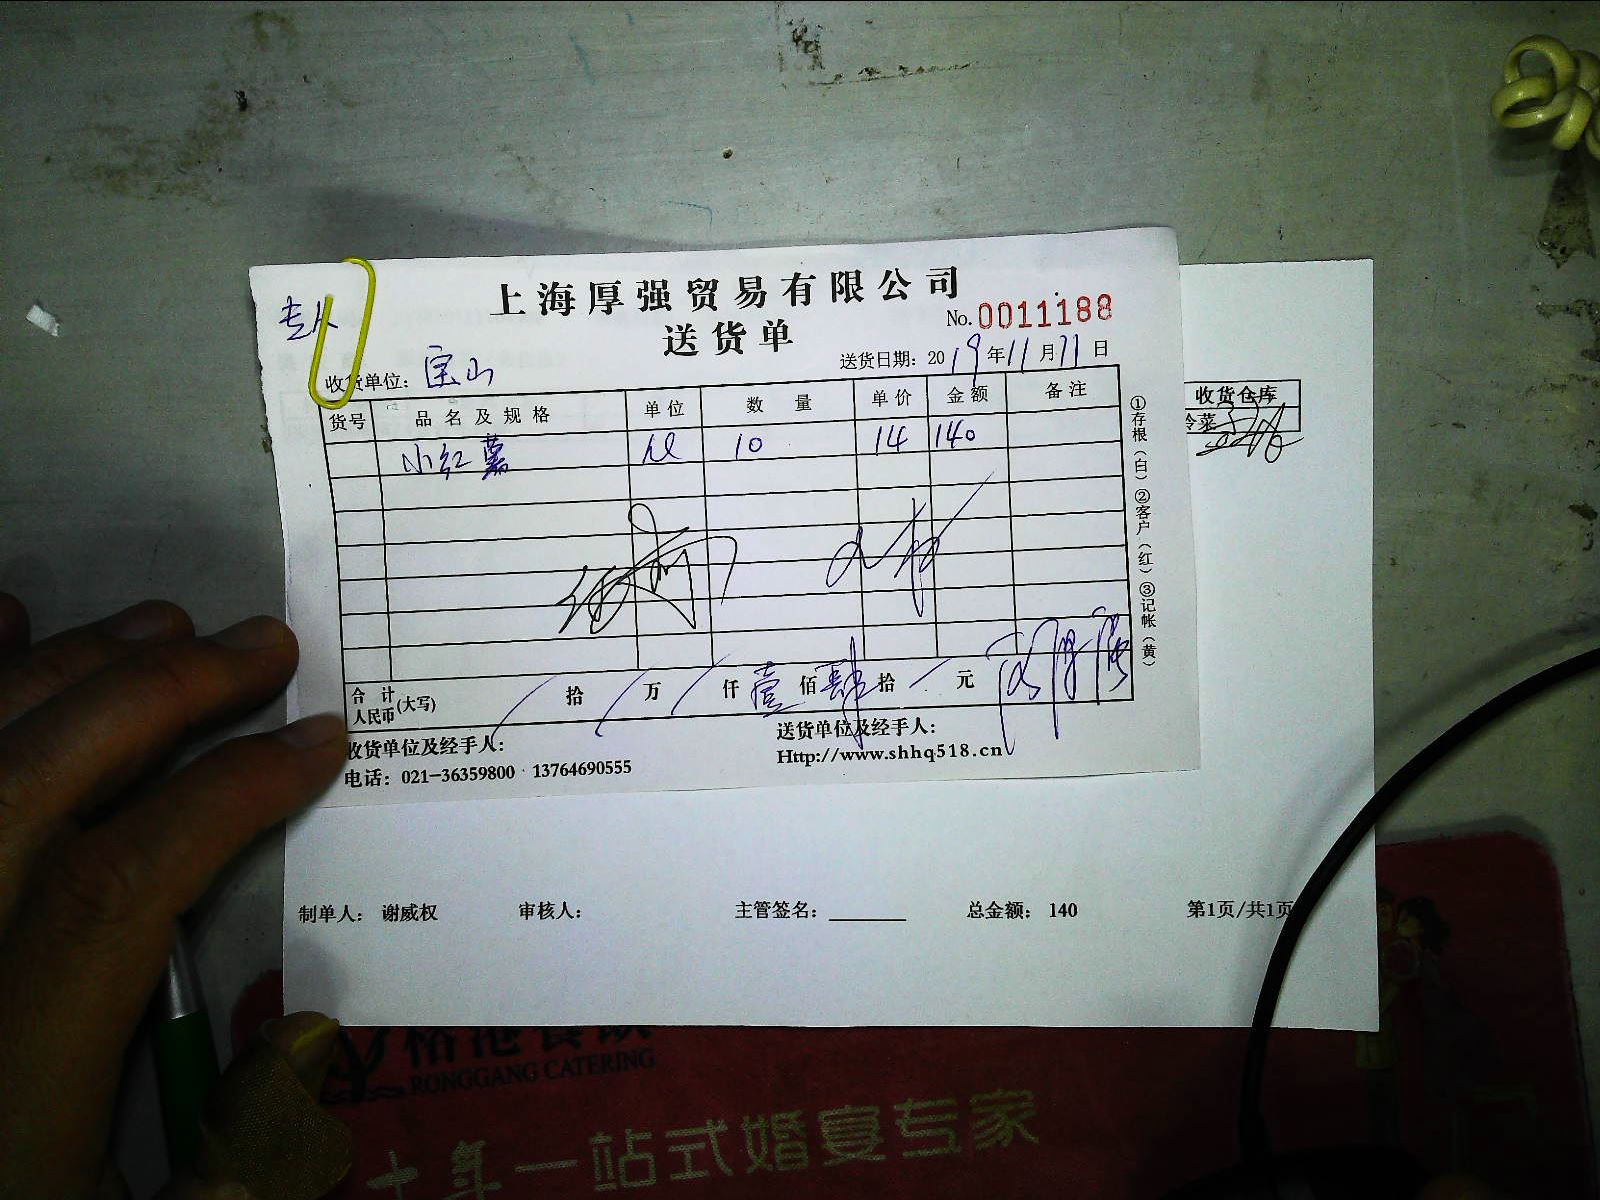 上海厚强贸易有限公司
送货单
No.0011188
收货单位: 宝山
送货日期: 2019年11月11日
货号 品名及规格 单位 数量 单价 金额 备注
小红薯 10 14 140
①存根(白)②客户(红)③记帐(黄)
合计人民币(大写) 拾 万 仟 壹 佰 肆 拾 元
收货单位及经手人:
送货单位及经手人:
电话: 021-36359800 13764690555
Http://www.shhq518.cn
收货仓库
冷菜
制单人: 谢威权 审核人: 主管签名: 总金额: 140 第1页/共1页
RONGGANG CATERING
十年一站式婚宴专家